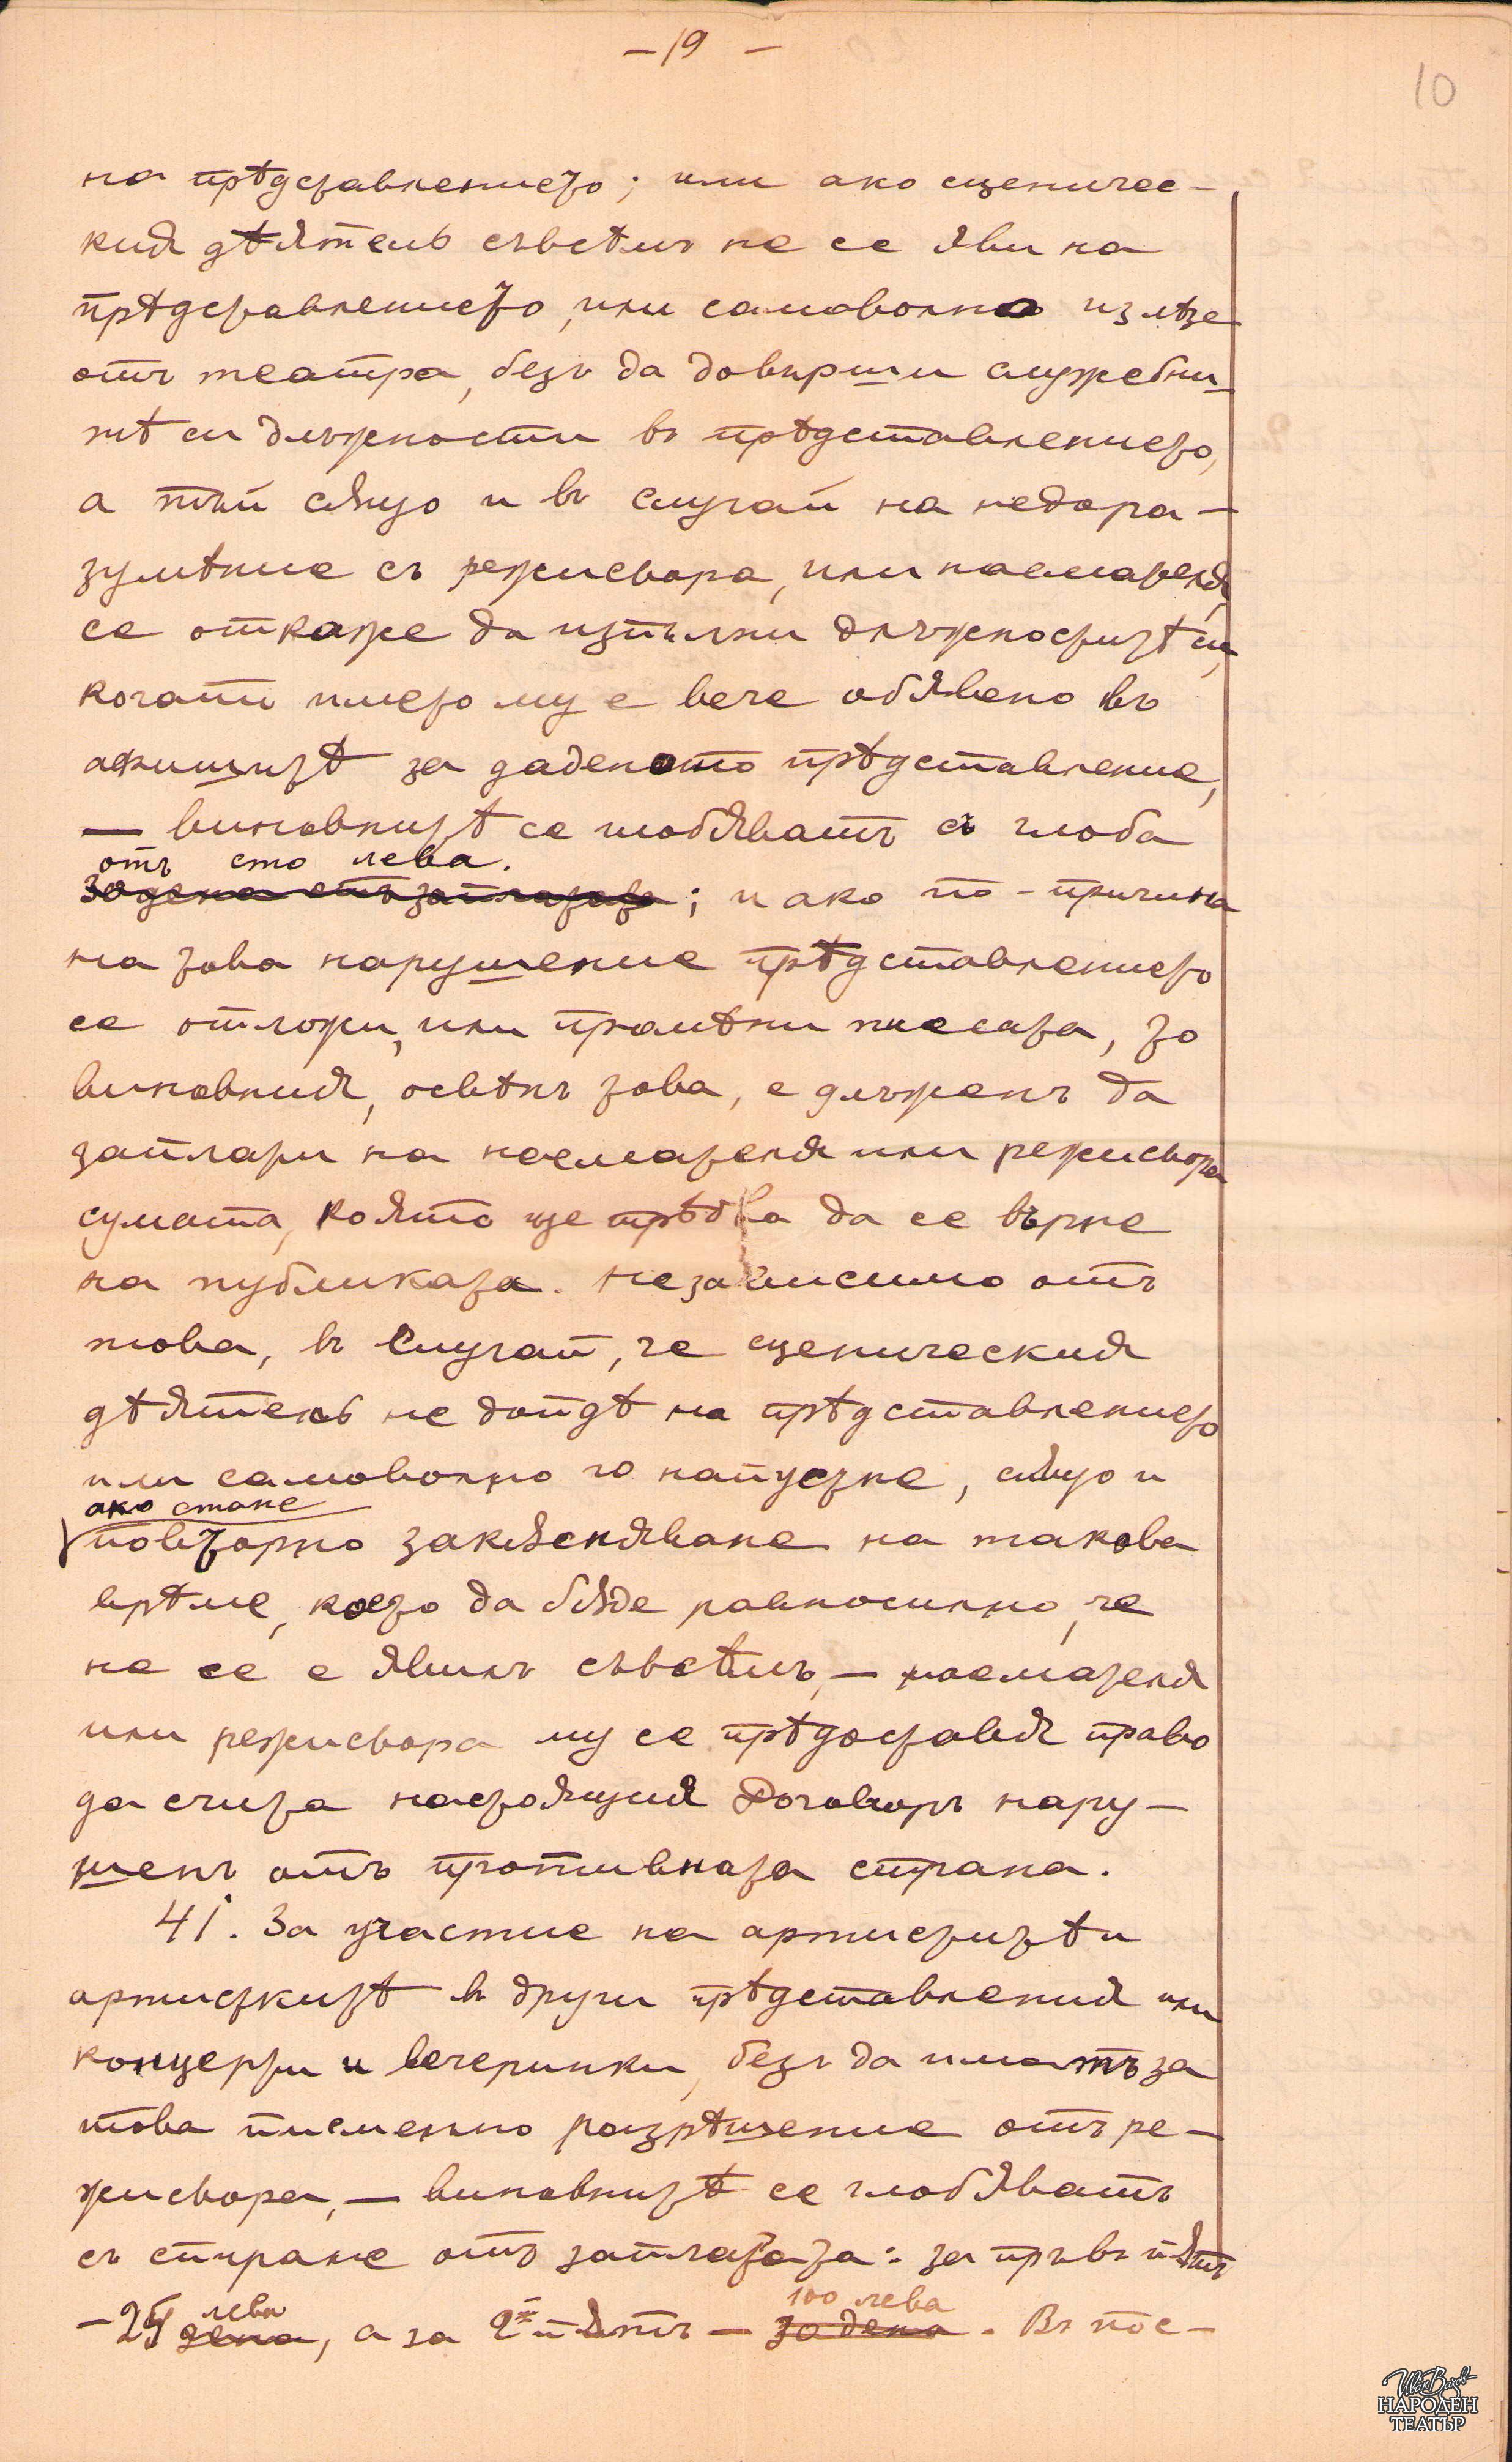 —19—
10
на прѣдставлението; или ако сценичес-
кия дѣятель съвсѣмъ не се яви на
прѣдставлението, или самоволно излѣзе
отъ театра, безъ да довърши служебни-
тѣ си длъжности въ прѣдставлението,
а тъй сѫщо и въ случай на недора-
зумѣние съ режисьора, или наемателя,
се откаже да изпълни длъжноститѣ си,
когато името му е вече обявено въ
афишитѣ за даденото прѣдставление,
— виновнитѣ се глобяватъ съ глоба
отъ сто лева.
30 дена отъ заплатата; и ако по-причина
на това нарушение прѣдставлението
се отложи, или промѣни пиесата, то
виновния, освѣнъ това, е длъженъ да
заплати на наемателя или режисьора
сумата, която ще трѣбва да се върне
на публиката. Независимо отъ
това, въ случай, че сценическия
дѣятель не дойдѣ на прѣдставлението
или самоволно го напустне, сѫщо и
ако стане
повторно закъсняване на такова
врѣме, което да бѫде равносилно, че
не се е явилъ съвсѣмъ, — наемателя
или режисьора му се прѣдоставя право
да счита настоящия Договоръ нару-
шенъ отъ противната страна.
41. За участие на артиститѣ и
артисткитѣ въ други прѣдставления или
концерти и вечеринки, безъ да иматъ за
това писменно разрѣшение отъ ре-
жисьора, — виновнитѣ се глобяватъ
съ спиране отъ заплатата: за пръвъ пѫтъ
лева 100 лева
—25 дена, а за 2й пѫтъ — 30 дена. Въ пос-
Иван Вазов
НАРОДЕН
ТЕАТЪР